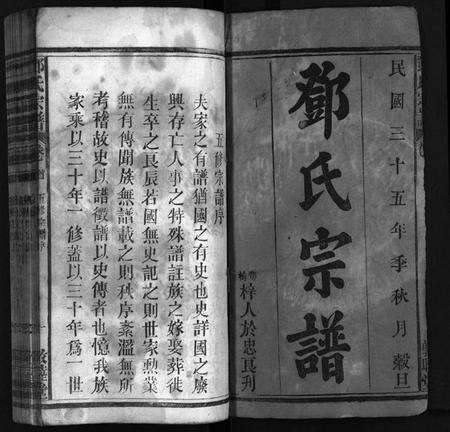 民國三十五年季秋月穀旦
鄧氏宗譜
梓人於忠良刋
五修宗譜序
夫家之有譜猶國之有史也史詳國之廢
興存亡人事之特殊譜註族之嫁娶葬徙
生卒之良辰若國無史記之則世家勲業
無有傳聞族無譜載之則秩序紊濫無所
考稽故史以譜徵譜以史傳者也憶我族
家乘以三十年一修蓋以三十年爲一世